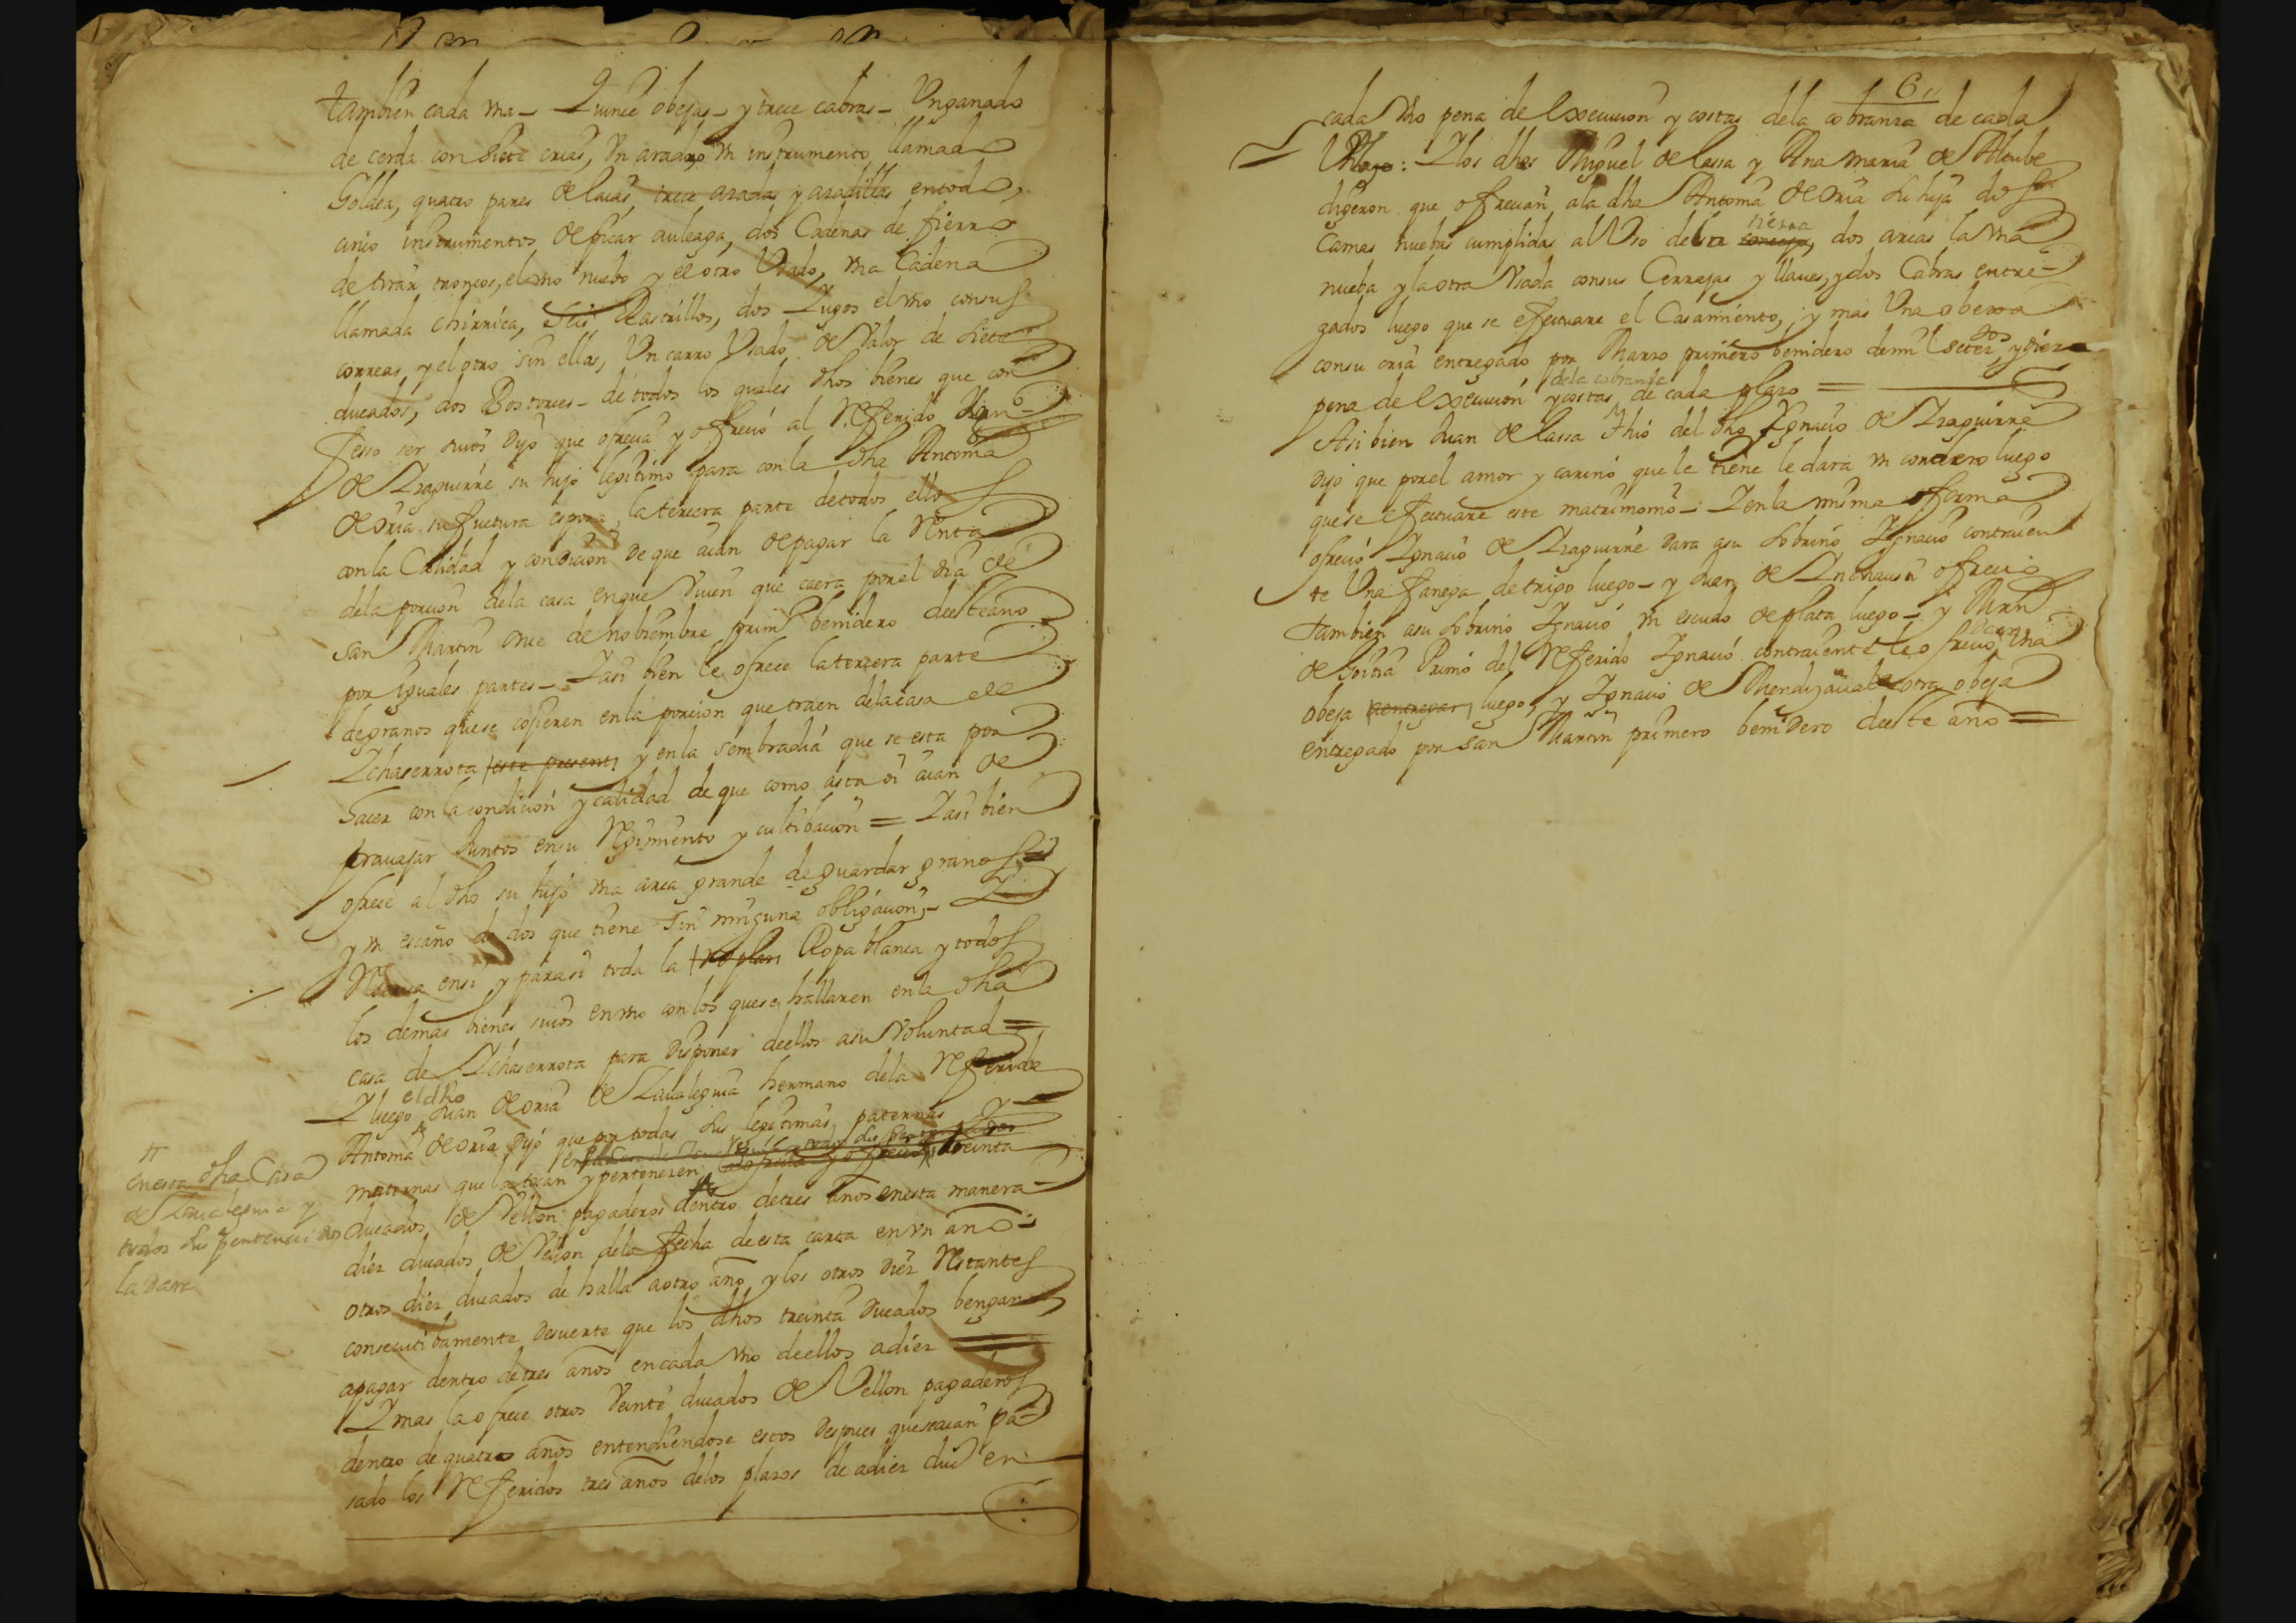 tambien cada vna - Quince obejas - y trece cabras - Vn ganado
de cerda con siete crias, Vn aradro vn instrumento llamado
Goldea, quatro pares de laias, trece arada y aradillas en todo,
cinco instrumentos de picar auleaga, dos Cadenas de fierro
de tirar troncos, el vno nuebo y el otro Vsado, vna Cadena
llamada chirrica, seis Rastrillos, dos Yugos el vno con sus
correas, y el otro sin ellas, Vn carro Vsado de Valor de siete
ducados, dos Bostorces - de todos los quales dhos bienes que con
fesso ser suios Dijo que ofrecia y ofrecio al Referido Ign.o
de Yzaguirre su hijo legitimo para con la dha Antonia
de Oria su fuctura esposa, la tercera parte de todos ellos
con la Calidad y condicion de que aian de pagar la Renta
de la porcion de la casa en que Viuen que caera por el dia de
san Martin once de nobiembre prim.o benidero de este año
por iguales partes - Y asi bien le ofrece la tercera parte
de granos que se cojieren en la porcion que traen de la casa de
Echaserrota este present y en la sembradia que se esta por
hacer con la condicion y calidad de que como asta oi aian de
trauajar Juntos en su Regimiento y cultibacion = Y asi bien
ofrece al dho su hijo vna arca grande de guardar granos
y vn escaño de dos que tiene sin ninguna obligacion, -
Reserua en si y para si toda la Ropa blanca y todos
los demas bienes suios en vno con los que se hallaren en la dha
casa de Echaserrota para Disponer de ellos a su Voluntad =
Y luego el dho Juan de oria de Laualeguia hermano de la Referida
Antonia de oria Dijo que por todas sus legitimas, paternas y
maternas que le tocan y pertenecen, treinta
en esta dha Casa
de Laualeguia y
todos sus pertenecidos
la Dara
ducados de Vellon pagaderos dentro de tres años en esta manera -
diez ducados de Vellon de la fecha de esta carta en vn año -
otros diez ducados de halla a otro año y los otros diez Restantes
consecutibamente Desuerte que los dhos treinta Ducados bengan
a pagar dentro de tres años en cada vno de ellos a diez =
Y mas la ofrece otros Veinte ducados de Vellon pagaderos
dentro de quatro años entendiendose estos Despues que se aian pa-
sado los Referidos tres años de los plazos de a diez duc.s en
6
cada vno pena de Execucion y costas de la cobranza de cada
Plazo: Y los dhos Miguel de lassa y Ana maria de Alcube
digeron que ofrecian a la dha Antonia de Oria su hija dos
Camas nuebas cumplidas al Vso de la tierra, dos arcas la vna
nueba y la otra Vsada con sus Cerrajas y llaues, y dos Cabras entre-
gados luego que se efectuare el Casamiento, y mas Vna oberra
con su cria entregado por Marzo primero benidero de mil setez.tos y diez
pena de Execucion y costas de la cobranza de cada plazo =
Asi bien Juan de lassa thio del dho Ygnacio de Yzaguirre
Dijo que por el amor y carino que le tiene le dara vn cordero luego
que se efectuare este matrimonio - Y en la misma forma
ofrecio Ygnacio de Yzaguirre Dara a su sobrino Ygnacio contraien
te Vna fanega de trigo luego - y Juan de Inchausti ofrecio
tambien a su sobrino Ygnacio vn escudo de plata luego - y Mrn
de Goitia Primo del Referido Ygnacio contraiente le ofrecio Vna
obeja luego, y Ygnacio de Mendizaual otra obeja
entregado por san Martin primero benidero de este año =